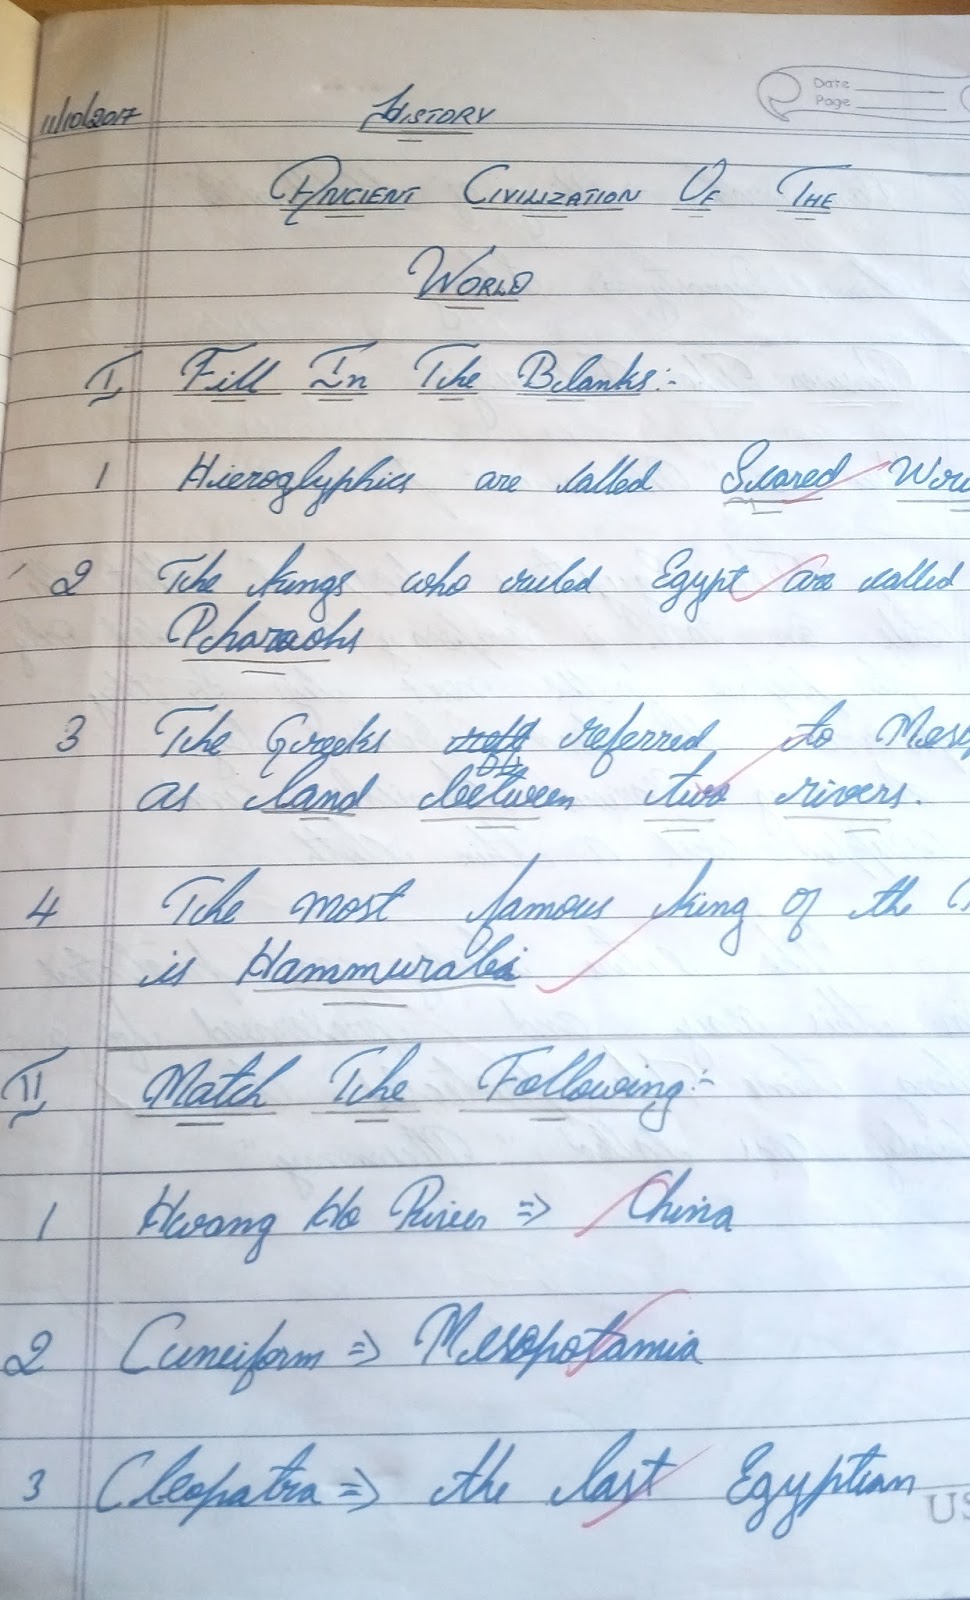 Date
Page
11/10/2017
HISTORY
ANCIENT CIVILIZATION OF THE
WORLD
I Fill In The Blanks:-
1 Hieroglyphics are called Scared
2 The kings who ruled Egypt are called
Pharaohs
3 The Greeks referred to
as land between two rivers.
4 The most famous king of the
is Hammurabi
II Match The Following:-
1 Hwang Ho River => China
2 Cuneiform => Mesopotamia
3 Cleopatra => the last Egyptian